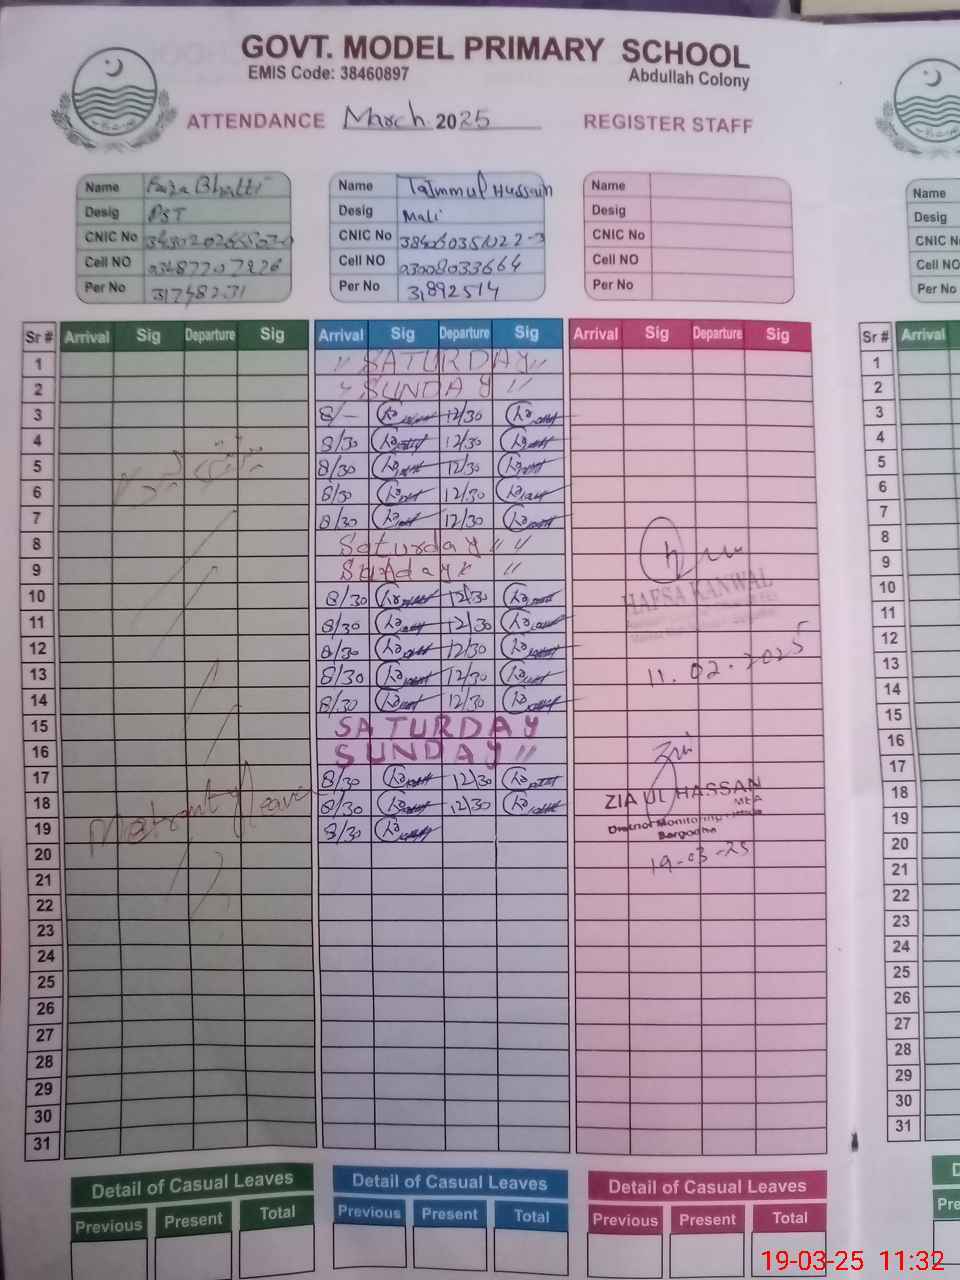 GOVT. MODEL PRIMARY SCHOOL
EMIS Code: 38460897
Abdullah Colony
ATTENDANCE March 2025 REGISTER STAFF
Name Faiza Bhatti
Desig PST
CNIC No
Cell NO
Per No 31748231
Name Tajmmul Hussain
Desig Mali
CNIC No
Cell NO 03008033664
Per No 31892514
Name
Desig
CNIC No
Cell NO
Per No
Name
Desig
CNIC N
Cell NO
Per No
Sr # Arrival Sig Departure Sig Arrival Sig Departure Sig Arrival Sig Departure Sig Sr # Arrival
1 " SATURDAY " 1
2 " SUNDAY " 2
3 8/- 12/30 3
4 8/30 12/30 4
5 8/30 12/30 5
6 8/30 12/30 6
7 8/30 12/30 7
8 Saturday " " 8
9 Sunday " " 9
10 8/30 12/30 HAFSA KANWAL 10
11 8/30 12/30 11
12 8/30 12/30 12
13 8/30 12/30 11.02.2025 13
14 8/30 12/30 14
15 SATURDAY 15
16 SUNDAY " 16
17 8/30 12/30 17
18 Leave 8/30 12/30 ZIA UL HASSAN 18
MEA
19 8/30 District Monitoring 19
Sargodha
20 19-03-25 20
21 21
22 22
23 23
24 24
25 25
26 26
27 27
28 28
29 29
30 30
31 31
Detail of Casual Leaves Detail of Casual Leaves Detail of Casual Leaves D
Previous Present Total Previous Present Total Previous Present Total Pre
19-03-25 11:32